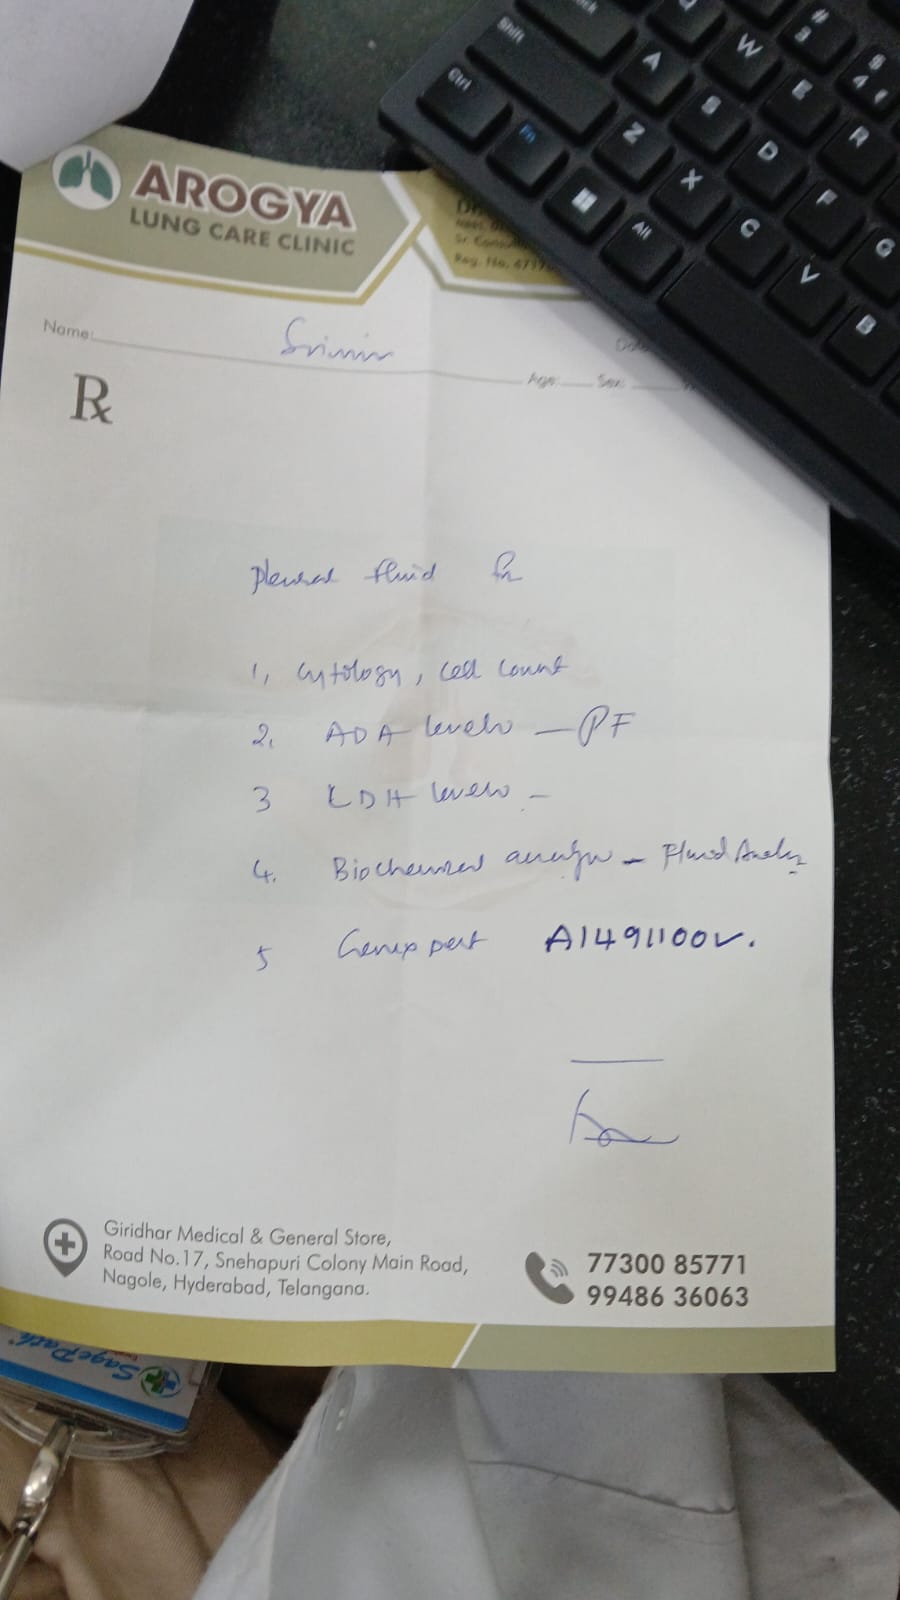 AROGYA
LUNG CARE CLINIC
Sr. Consul
Reg. No. 4717
Name:
Date
Age: Sex:
Rx
Pleural fluid for
1, Cytology, Cell Count
2. ADA levels – PF
3 LDH levels –
4. Biochemical analysis – Fluid Analy
5 Genexpert A1491100V.
Giridhar Medical & General Store,
Road No.17, Snehapuri Colony Main Road,
Nagole, Hyderabad, Telangana.
77300 85771
99486 36063
SagePath
Ctrl
Shift
Fn
Alt
A
W
#
3
$
4
E
R
S
Z
D
X
F
C
G
V
B